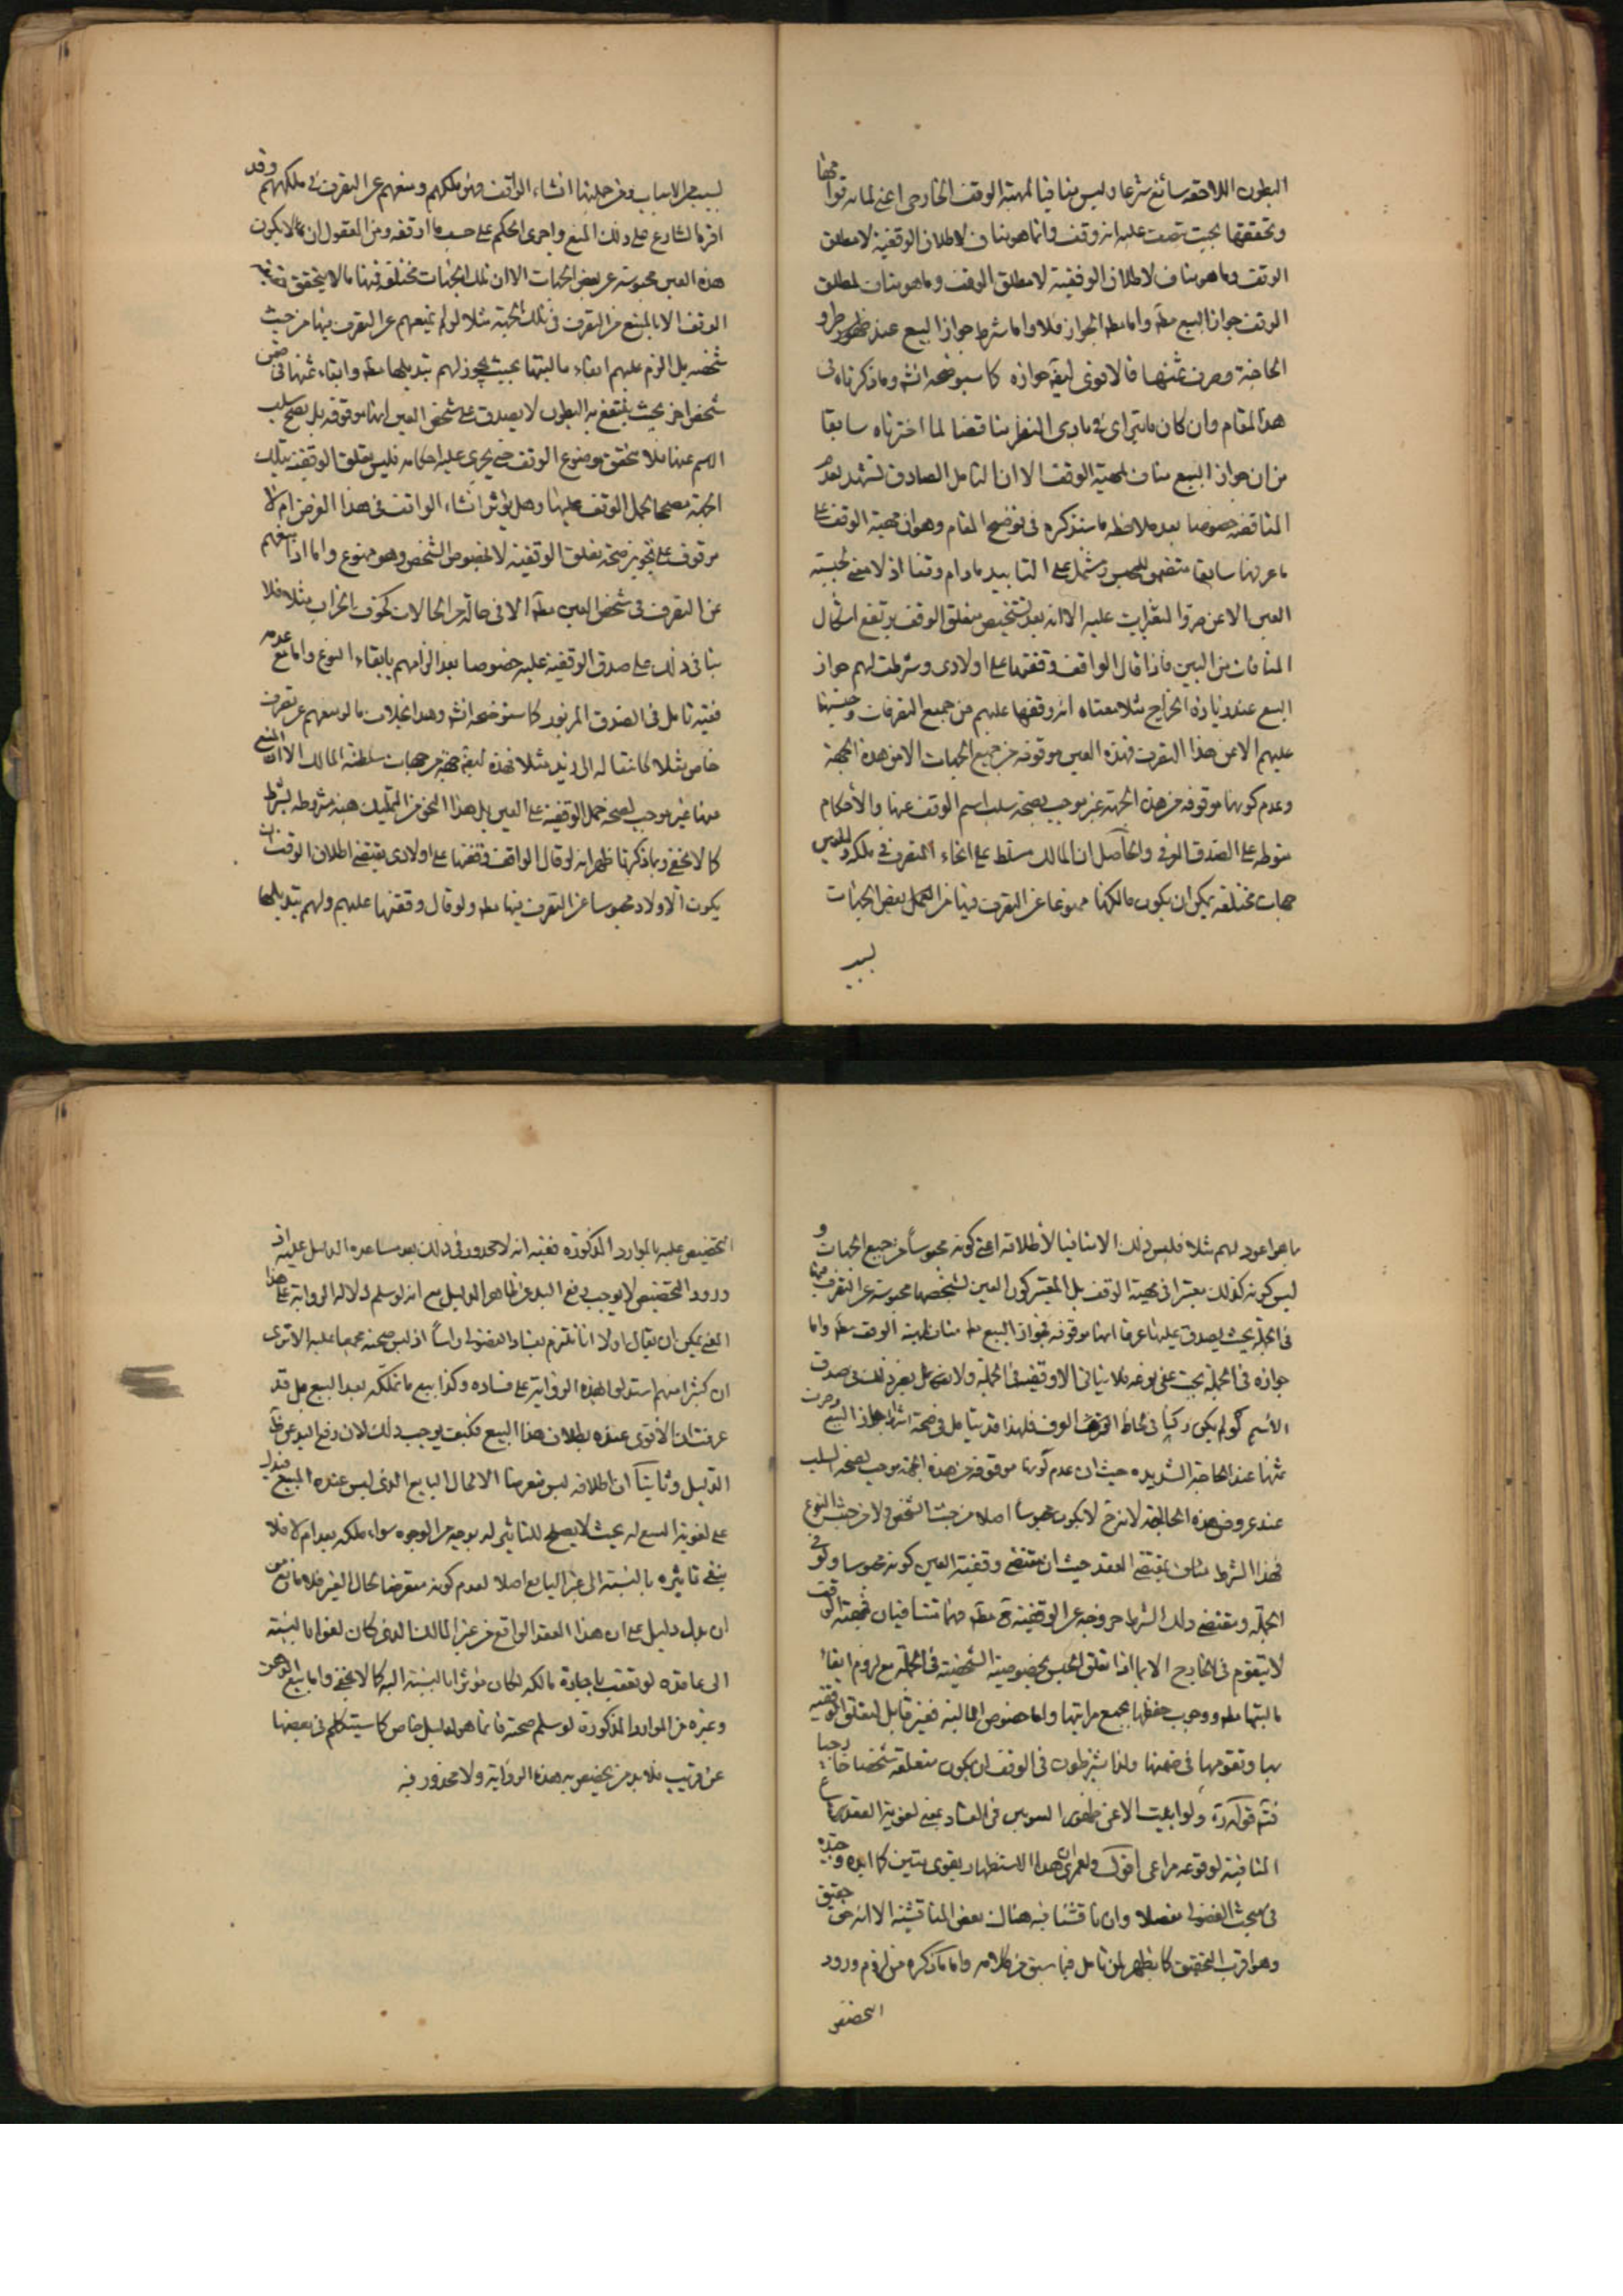 البطون اللاحقه سائغ شرعا وليس منافيا لمهية الوقف الخارجى اعنى لما به قوامها
وتحققها بحيث يصدق عليه انه وقف وانما هو مناف لاطلاق الوقفية لا مطلق
الوقف وما هو مناف لاطلاق الوقفية لا مطلق الوقف وما هو مناف لمطلق
الوقف جواز البيع مطه واما مطه الجواز فلا واما شرط جواز البيع عند ظهور طرو
الحاجة وصرف ثمنها فالاقوى ايضه جوازه كما سنوضحه انشه وما ذكرناه فى
هذا المقام وان كان يترائى فى بادى النظر مناقضا لما اخترناه سابقا
من ان جواز البيع مناف لمهية الوقف الا ان التامل الصادق يشهد بعدم
المناقضه خصوصا بعد ملاحظه ما سنذكره فى توضيح المقام وهو ان مهية الوقف على
ما عرفتها سابقا متضمن للحبس ومشتمل على التابيد مادام وقفا اذ لا معنى لحبسيه
العين الا عن طرو التغيرات عليه الا انه بعد تشخيص متعلق الوقف يرتفع اشكال
المنافات من البين فاذا قال الواقف وقفتها على اولادى وشرطت لهم جواز
البيع عند زيادة الخراج مثلا معناه انه وقفها عليهم من جميع التصرفات وحبسها
عليهم الا من هذا التصرف فهذه العين موقوفه من جميع الجهات الا من هذه الجهة
وعدم كونها موقوفه من هذه الجهة غير موجب لصحة سلب اسم الوقف عنها والأحكام
منوطه على الصدق العرفى والحاصل ان المالك مسلط على انحاء التصرف فى ملكه وللحبس
جهات مختلفه يمكن ان يكون مالكها ممنوعا عن التصرف فيها من بعض الجهات
لسبب
لسبب من الاسباب ومن جملتها انشاء الواقف وهو ملكهم ومنعهم عن التصرف فى ملكهم وقد
اقره الشارع على ذلك المنع واجرى الحكم على حسب ما اوقفه ومن المعقول ان لا يكون
هذه العين محبوسة عن بعض الجهات الا ان تلك الجهات مختلفه فمنها ما لا يتحقق
الوقف الا بالمنع من التصرف فى تلك الجهة مثلا لو لم يمنعهم عن التصرف فيها من حيث
شخصه بل الزم عليهم ابقاء ماليتها بحيث يجوز لهم تبديلها مطه وابقاء ثمنها فى ضمن
شخص اخر بحيث ينتفع به البطون لا يصدق على شخص العين انها موقوفه بل يصح سلب
الاسم عنها فلا يتحقق موضوع الوقف حتى يجرى عليه احكامه فليس تعلق الوقفية بتلك
الجهة مصححا لحمل الوقف عليها وهل يؤثر انشاء الواقف فى هذا الفرض ام لا
موقوف على تجويز صحة تعلق الوقفية لا بخصوص الشخص وهو ممنوع واما اذا منعهم
عن التصرف فى شخص العين مطه الا فى حاله من الحالات كخوف الخراب مثلا فلا
ينافى ذلك على صدق الوقفية عليه خصوصا بعد الزامهم بابقاء النوع واما مع عدمه
ففيه تامل فى الصدق المزبور كما سنوضحه انشه وهذا بخلاف ما لو منعهم عن تصرف
خاص مثلا كانتقاله الى زيد مثلا فهذه ايضه جهة من جهات سلطنة المالك الا ان المنع
عنها غير موجب لصحة حمل الوقفية على العين بل هذا النحو من التمليك هبه مشروطه بشرط
كما لا يخفى ومما ذكرنا ظهر انه لو قال الواقف وقفتها على اولادى يقتضى اطلاق الوقف ان
يكون الاولاد محبوسا عن التصرف فيها مطه ولو قال وقفتها عليهم ولهم تبديلها
ما هو اعود لهم مثلا فليس ذلك الا منافيا لأطلاقه اعنى كونه محبوسا من جميع الجهات و
ليس كونه كذلك معتبرا فى مهية الوقف بل المعتبر كون العين لشخصها محبوسة عن التصرف فيها
فى الجملة بحيث يصدق عليها عرفا انها موقوفه فجواز البيع مطه مناف لمهية الوقف مطه واما
جوازه فى الجملة بحيث فلا ينافى الا وقفيته فى الجملة ولا يضر ذلك فى صدق
الأسم فلهذا قد يتامل فى صحة اشتراط جواز البيع وصرف
ثمنها عند الحاجة الشديده حيث ان عدم كونها موقوفه من هذه الجهة موجب لصحة السلب
عند عروض هذه الحالة لانه ح لا يكون محبوسا اصلا من حيث الشخص ولا من حيث النوع
فهذا الشرط مناف لمقتضى العقد حيث ان مقتضى وقفية العين كونه محبوسا ولو فى
الجملة ومقتضى ذلك الشرط خروجه عن الوقفية ح مطه فهما متنافيان فمهية الوقف
لا يتقوم فى الخارج الا بما اذا تعلق الحبس بخصوصية الشخصية فى الجملة مع لزوم ابقاء
ماليتها مطه ووجوب حفظها بجميع مراتبها واما خصوص المالية فغير قابل لتعلق الوقفية
بها وتقومها فى ضمنها ولذا يشترطون فى الوقف ان يكون متعلقه شخصا خارجيا
قوله ره ولو ابيت الا عن ظهور السوس فى الفساد يعنى لغوية العقد
المنافية لوقوعه مراعى اقول ولعمرى ان هذا الاستظهار بقوى متين كما ايده وحيده
فى مبحث الفضولى مفصلا وان ناقشنا فيه هناك بعض المناقشة الا انه حقيق
وهو اقرب التحقيق كما يظهر لمن تامل فيما سبق من كلامه واما ما ذكره من لزوم ورود
التخصيص
التخصيص عليه بالموارد المذكوره ففيه انه لا محذور فى ذلك بعد مساعدة الدليل عليه اذ
ورود التخصيص لا يوجب رفع اليد عن ظاهر الدليل مع انه لو سلم دلالة الرواية على هذا
المعنى يمكن ان يقال اولا انا نلتزم بفساد الفضولى راسا اذ ليس صحته مجمعا عليه الا ترى
ان كثيرا منهم استدلوا بهذه الرواية على فساده وكذا بيع ما تملكه بعد البيع بل قد
عرفت ان الاقوى عنده بطلان هذا البيع فكيف يوجب ذلك لان رفع اليد عن ظاهر
الدليل وثانيا ان اطلاقه ليس متعرضا الا لحال البايع الذى ليس عنده المبيع فيدل
على لغوية البيع له بحيث لا يصلح للتاثير له بوجه من الوجوه سواء ملكه بعد ام لا فلا
ينفى تاثيره بالنسبة الى غير البايع اصلا لعدم كونه متعرضا لحال الغير فلا مانع من
ان يدل دليل على ان هذا العقد الواقع من غير المالك الذى كان لغوا بالنسبة
الى عاقده لو تعقب باجازة مالكه لكان مؤثرا بالنسبة اليه كما لا يخفى واما بيع الرهن
وغيره من الموارد المذكورة لو سلم صحته فانما هو لدليل خاص كما سيتكلم فى بعضها
عن قريب فلا بد من تخصيص به هذه الرواية ولا محذور فيه